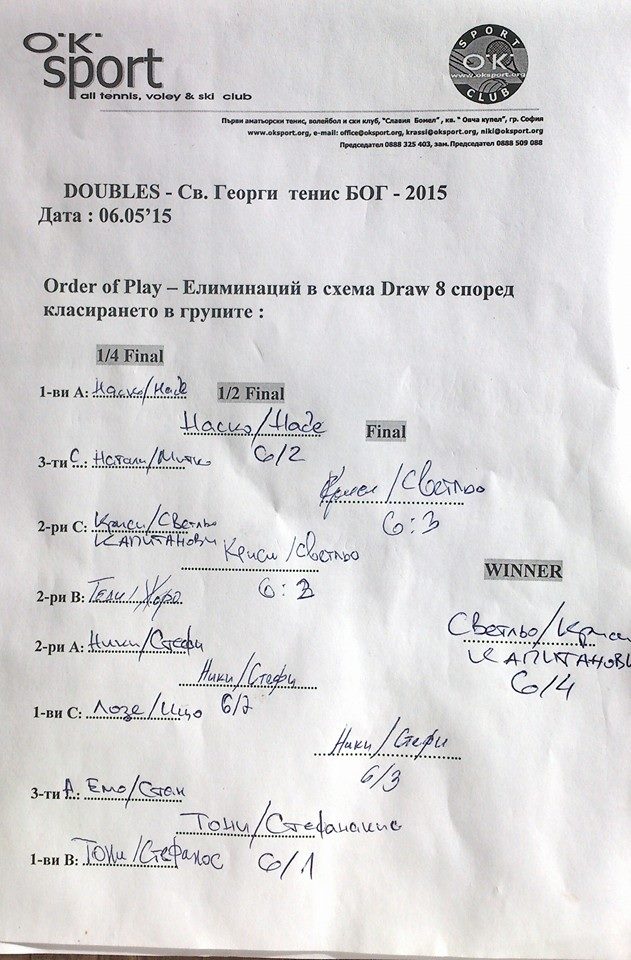 O·K·
sport
all tennis, voley & ski club
SPORT
O·K·
www.oksport.org
CLUB
Първи аматьорски тенис, волейбол и ски клуб, "Славия Бомел" , кв. " Овча купел", гр. София
www.oksport.org, e-mail: office@oksport.org, krassi@oksport.org, niki@oksport.org
Председател 0888 325 403, зам. Председател 0888 509 088
DOUBLES - Св. Георги тенис БОГ - 2015
Дата : 06.05'15
Order of Play – Елиминаций в схема Draw 8 според
класирането в групите :
1/4 Final
1-ви А: Наско/Наде
1/2 Final
Наско/Наде
6/2
Final
3-ти С: Натали/Митко
Криси/Светльо
6:3
2-ри С: Криси/Светльо
КАПИТАНОВИ
Криси/Светльо
6:3
WINNER
2-ри В: Тели/Жоро
Светльо/Криси
КАПИТАНОВИ
6/4
2-ри А: Ники/Стефи
Ники/Стефи
6/2
1-ви С: Лозе/Ицо
Ники/Стефи
6/3
3-ти А: Емо/Стан
Тони/Стефанакис
6/1
1-ви В: Тони/Стефанос